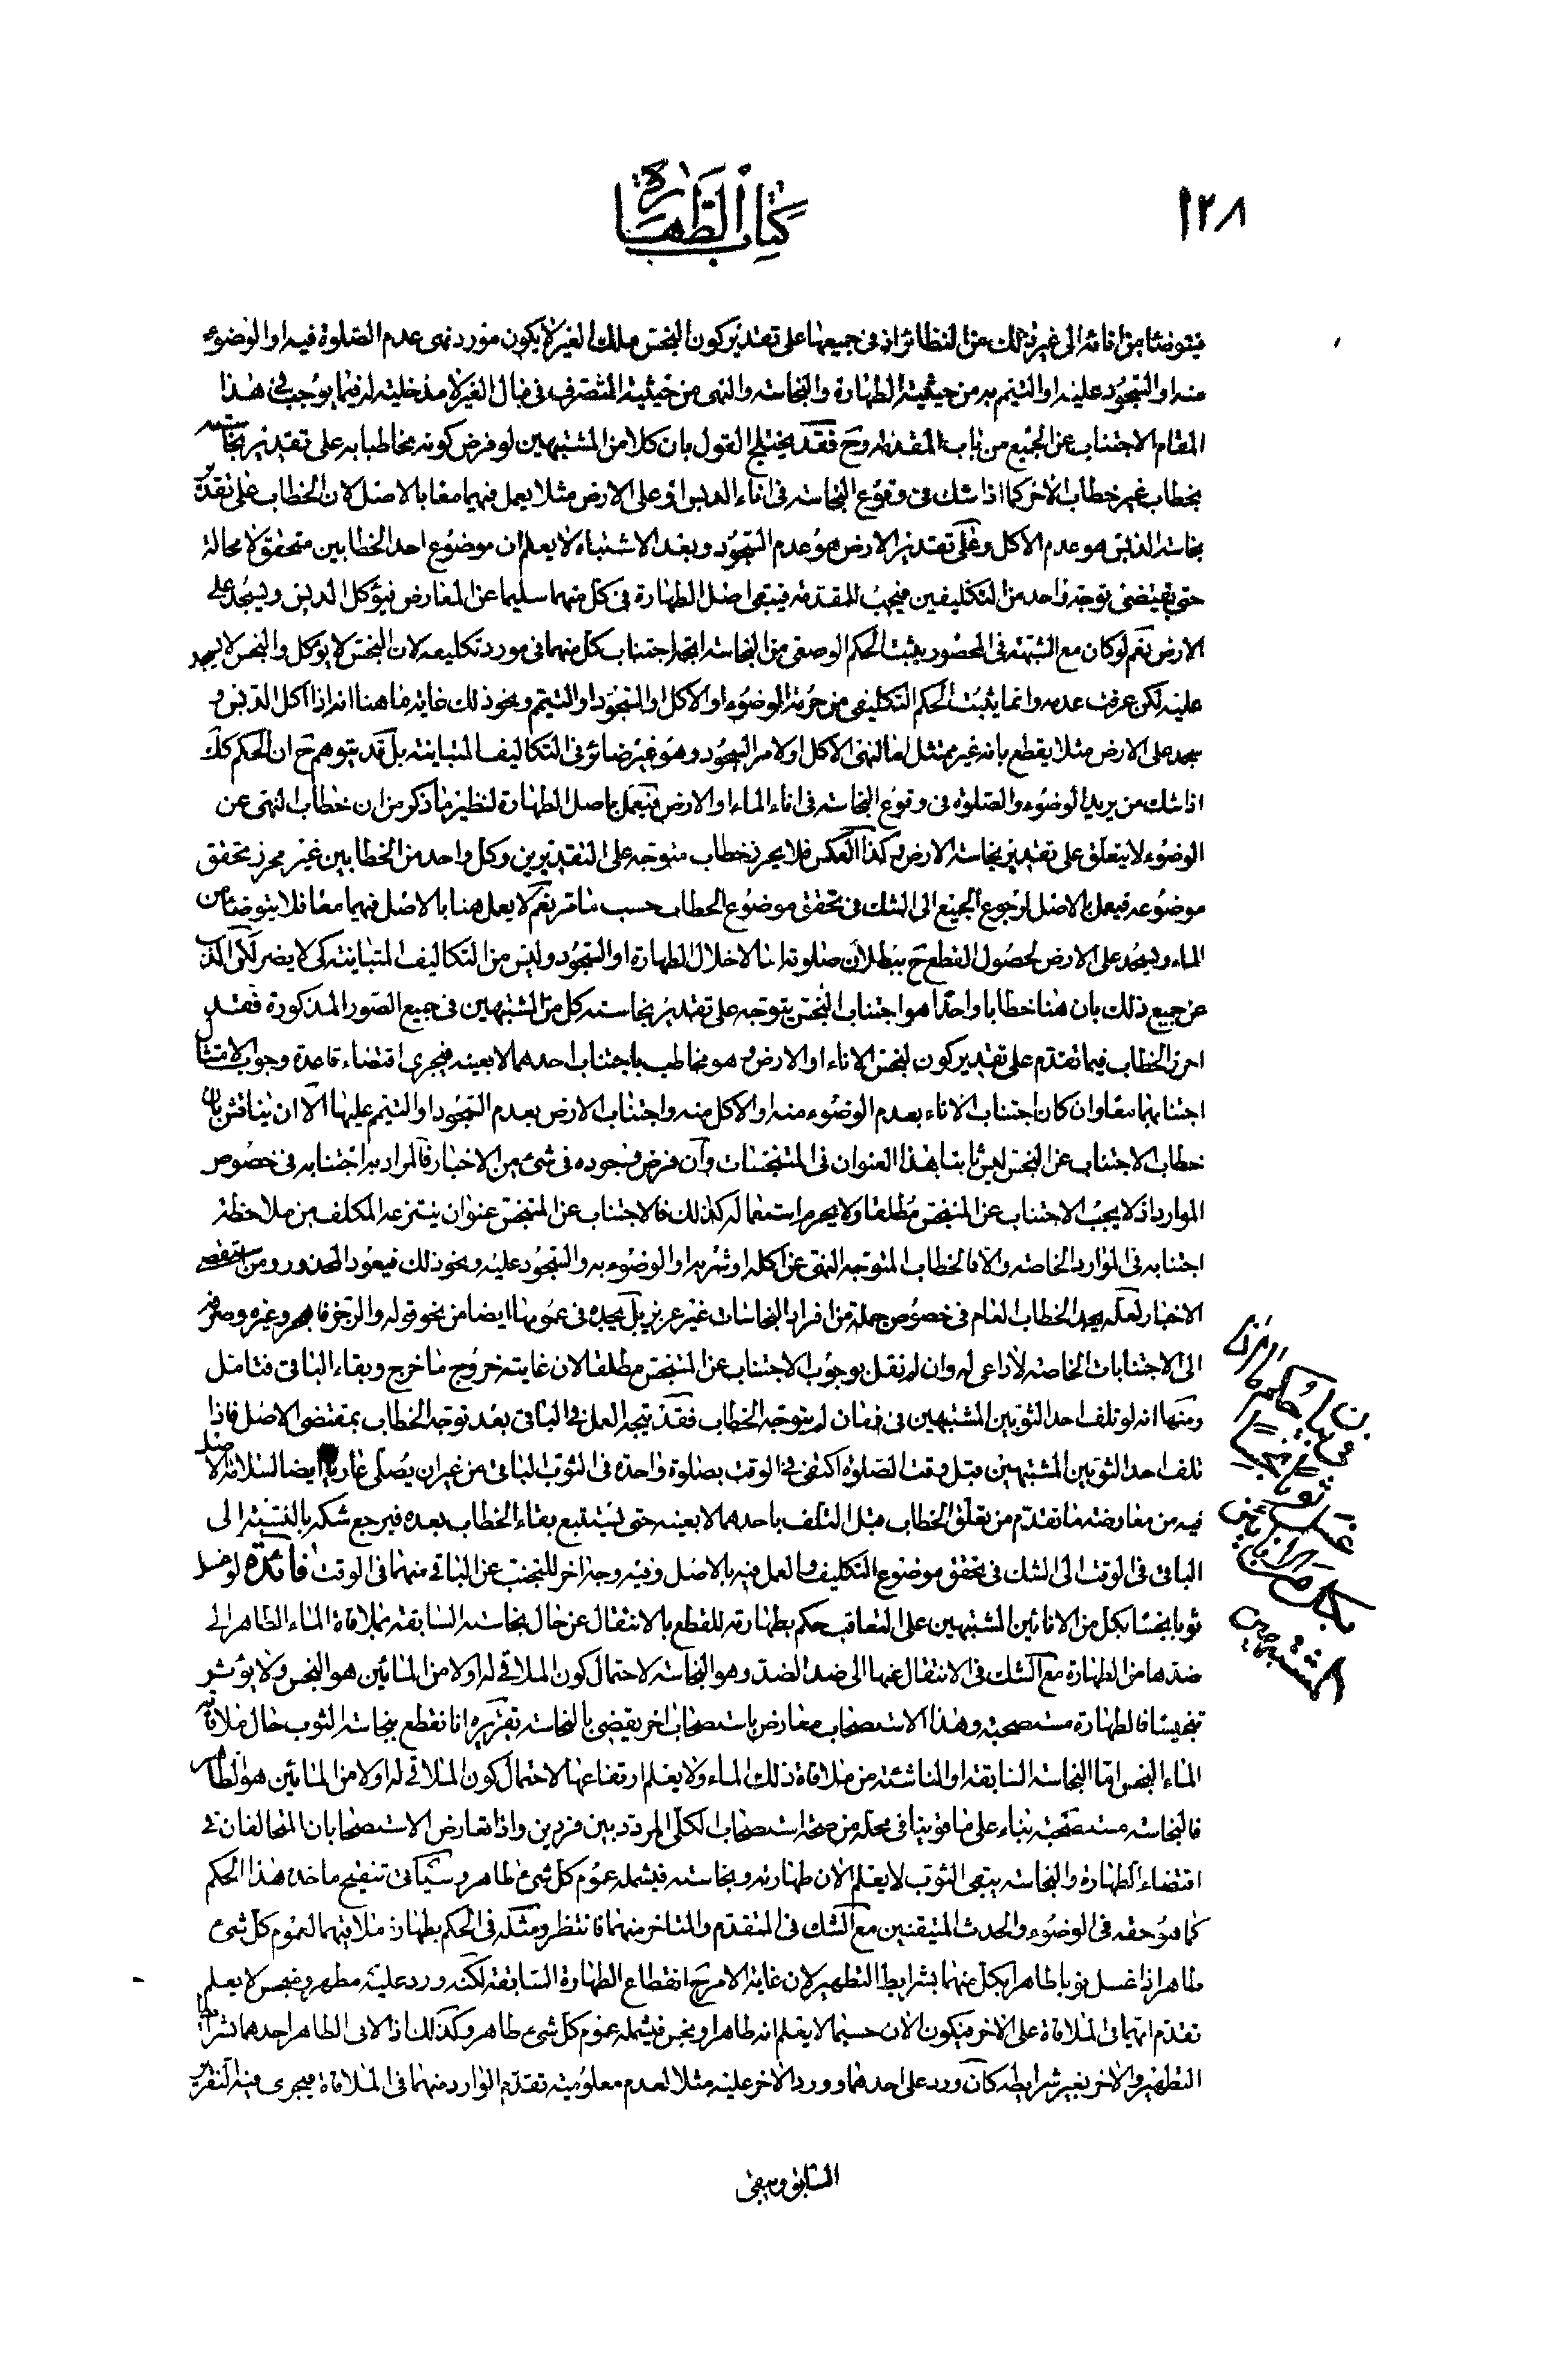 ١٢٨
كتاب الطهارة
فيتوضأ من انائه الى غير ذلك من النظائر اذ في جميعها على تقدير كون النجس ملك الغير لا يكون مورد نهى عدم الصلوة فيه او الوضوء
منه او السجود عليه او التيمم به من حيثية الطهارة والنجاسة والنهى من حيثية التصرف في مال الغير لا مدخلية له فيما يوجب في هذا
المقام الاجتناب عن الجميع من باب المقدمة وح فقد يختلج القول بان كلا من المشتبهين لو فرض كونه مخاطبا به على تقدير نجاسته
بخطاب غير خطاب الاخر كما اذا شك في وقوع النجاسة في اناء الدبس او على الارض مثلا يعمل فيهما معا بالاصل لان الخطاب على تقدير
نجاسة الدبس هو عدم الاكل وعلى تقدير الارض هو عدم السجود وبعد الاشتباه لا يعلم ان موضوع احد الخطابين متحقق لا محالة
حتى يقتضى توجه واحد من التكليفين فيجب للمقدمة فيبقى اصل الطهارة في كل منهما سليما عن المعارض فيؤكل الدبس ويسجد على
الارض نعم لو كان مع الشبهة في المحصور يثبت الحكم الوصفى من النجاسة اتجه اجتناب كل منهما في مورد تكليفه لان النجس لا يؤكل والنجس لا يسجد
عليه لكن عرفت عدمه وانما يثبت الحكم التكليفى من حرمة الوضوء او الاكل او السجود او التيمم ونحو ذلك غاية ما هنا انه اذا اكل الدبس و
سجد على الارض مثلا يقطع بانه غير ممتثل اما لنهى الاكل او لامر السجود وهو غير ضائر في التكاليف المتباينة بل قد يتوهم ح ان الحكم كك
اذا شك من يريد الوضوء والصلوة في وقوع النجاسة في اناء الماء او الارض فيعمل باصل الطهارة لنظير ما ذكر من ان خطاب النهى عن
الوضوء لا يتعلق على تقدير نجاسة الارض وكذا العكس فلا يحرز خطاب متوجه على التقديرين وكل واحد من الخطابين غير محرز تحقق
موضوعه فيعمل بالاصل لرجوع الجميع الى الشك في تحقق موضوع الخطاب حسب ما مر نعم لا يعمل هنا بالاصل فيهما معا فلا يتوضأ من
الماء ويسجد على الارض لحصول القطع ح ببطلان صلوته اما لاخلال الطهارة او السجود وليس من التكاليف المتباينة كى لا يضر لكن الذب
عن جميع ذلك بان هنا خطابا واحدا هو اجتناب النجس يتوجه على تقدير نجاسة كل من المشتبهين في جميع الصور المذكورة فقد
احرز الخطاب فيما تقدم على تقدير كون النجس الاناء او الارض وهو مخاطب باجتناب احدهما لا بعينه فيجرى اقتضاء قاعدة وجوب الامتثال
اجتنابهما معا وان كان اجتناب الاناء بعدم الوضوء منه او الاكل منه واجتناب الارض بعدم السجود او التيمم عليها الا ان يناقش بان
خطاب الاجتناب عن النجس ليس ثابتا بهذا العنوان في المتنجسات وان فرض وجوده في شىء من الاخبار فالمراد به اجتنابه في خصوص
الموارد اذ لا يجب الاجتناب عن المتنجس مطلقا ولا يحرم استعماله كذلك فالاجتناب عن المتنجس عنوان ينتزعه المكلف من ملاحظة
اجتنابه في الموارد الخاصة والا فالخطاب المتوجه النهى عن اكله او شربه او الوضوء به والسجود عليه ونحو ذلك فيعود المحذور ومن استقصى
الاخبار لعله يجد الخطاب العام في خصوص جملة من افراد النجاسات غير عزيز بل يجده في عمومها ايضا من نحو قوله والرجز فاهجر وغيره وصرفه
الى الاجتنابات الخاصة لا داعى له وان لم نقل بوجوب الاجتناب عن المتنجس مطلقا لان غايته خروج ما خرج وبقاء الباقى فتامل
ومنها انه لو تلف احد الثوبين المشتبهين في زمان لم يتوجه الخطاب فقد يتجه العمل في الباقى بعد توجه الخطاب بمقتضى الاصل فاذا
تلف احد الثوبين المشتبهين قبل وقت الصلوة اكتفى في الوقت بصلوة واحدة في الثوب الباقى من غير ان يصلى عاريا ايضا لسلامة الاصل
فيه من معارضة ما تقدم من تعلق الخطاب قبل التلف باحدهما لا بعينه حتى يستتبع بقاء الخطاب بعده فيرجع شكه بالنسبة الى
الباقى في الوقت الى الشك في تحقق موضوع التكليف والعمل فيه بالاصل وفيه وجه اخر للتجنب عن الباقى منهما في الوقت فائدة لو غسل
ثوبا نجسا بكل من الانائين المشتبهين على التعاقب حكم بطهارته للقطع بالانتقال عن حال نجاسته السابقة بملاقاة الماء الطاهر الى
ضدها من الطهارة مع الشك في الانتقال عنها الى ضد الضد وهو النجاسة لاحتمال كون الملاقى له اولا من المائين هو النجس ولا يؤثر
تنجيسا فالطهارة مستصحبة وهذا الاستصحاب معارض باستصحاب اخر يقضى بالنجاسة تقريره انا نقطع بنجاسة الثوب حال ملاقاته
الماء النجس اما النجاسة السابقة او الناشئة من ملاقاة ذلك الماء ولا يعلم ارتفاعها لاحتمال كون الملاقى له اولا من المائين هو الطاهر
فالنجاسة مستصحبة بناء على ما قوينا في محله من صحة استصحاب الكلى المردد بين فردين واذا تعارض الاستصحابان المتخالفان في
اقتضاء الطهارة والنجاسة يبقى الثوب لا يعلم الان طهارته ونجاسته فيشمله عموم كل شىء طاهر وسيأتى تنقيح ماخذ هذا الحكم
كما هو حقه في الوضوء والحدث المتيقنين مع الشك في المتقدم والمتاخر منهما فانتظر ومثله في الحكم بطهارة ملاقيهما لعموم كل شىء
طاهر اذا غسل ثوبا طاهرا بكل منهما بشرايط التطهير لان غاية الامر ح انقطاع الطهارة السابقة لكنه ورد عليه مطهر ونجس لا يعلم
تقدم ايهما في الملاقاة على الاخر فيكون الان جسما لا يعلم انه طاهر او نجس فيشمله عموم كل شىء طاهر وكذلك اذا لاقى الطاهر احدهما بشرايط
التطهير والاخر بغير شرايطه كان ورد على احدهما وورد الاخر عليه مثلا لعدم معلومية تقدم الوارد منهما في الملاقاة فيجرى فيه التقرير
السابق ويبقى